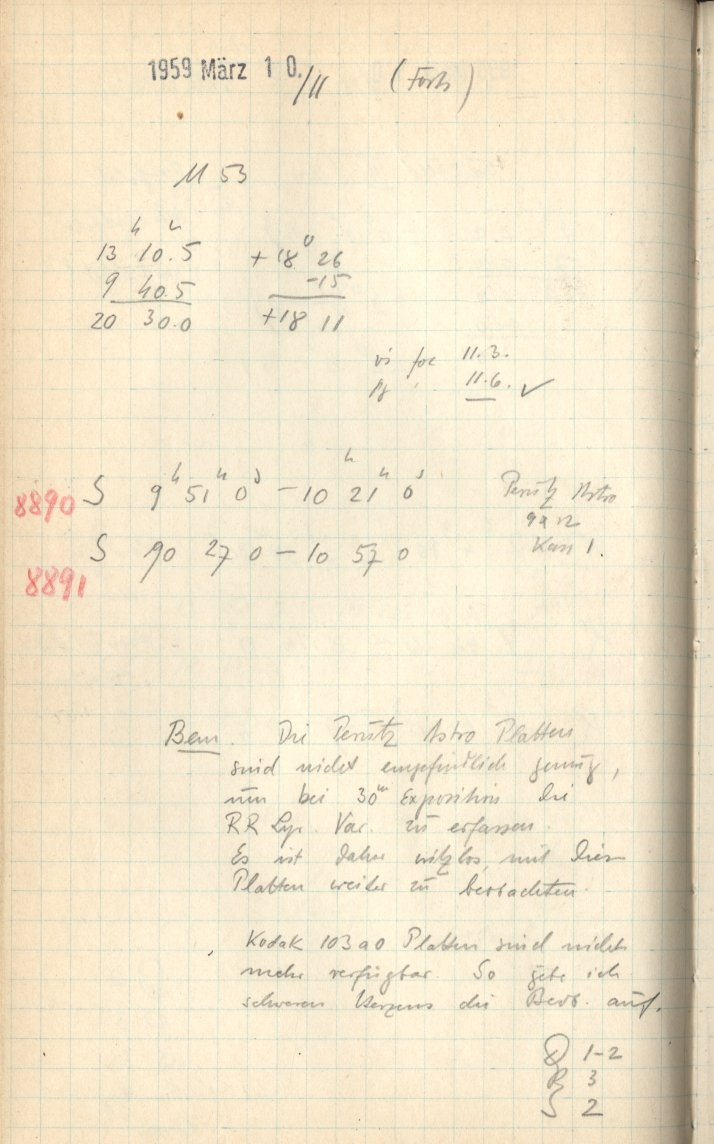 1959 März 10./11 (Forts)
M 53
h m
13 10.5 +18° 26
9 40.5 -15
20 30.0 +18 11
vis foc 11.3.
pg " 11.6. ✓
8890 S 9h 51m 0s - 10h 21m 0s Perutz Astro
S 90 27 0 - 10 57 0 Kass 1.
8891
Bem. Die Perutz Astro Platten
sind nicht empfindlich genug,
um bei 30m Exposition die
RR Lyr. Var. zu erfassen.
Es ist daher witzlos, mit diesen
Platten weiter zu beobachten.
Kodak 103a0 Platten sind nicht
mehr verfügbar. So gebe ich
schweren Herzens die Beob. auf.
D 1-2
R 3
S 2